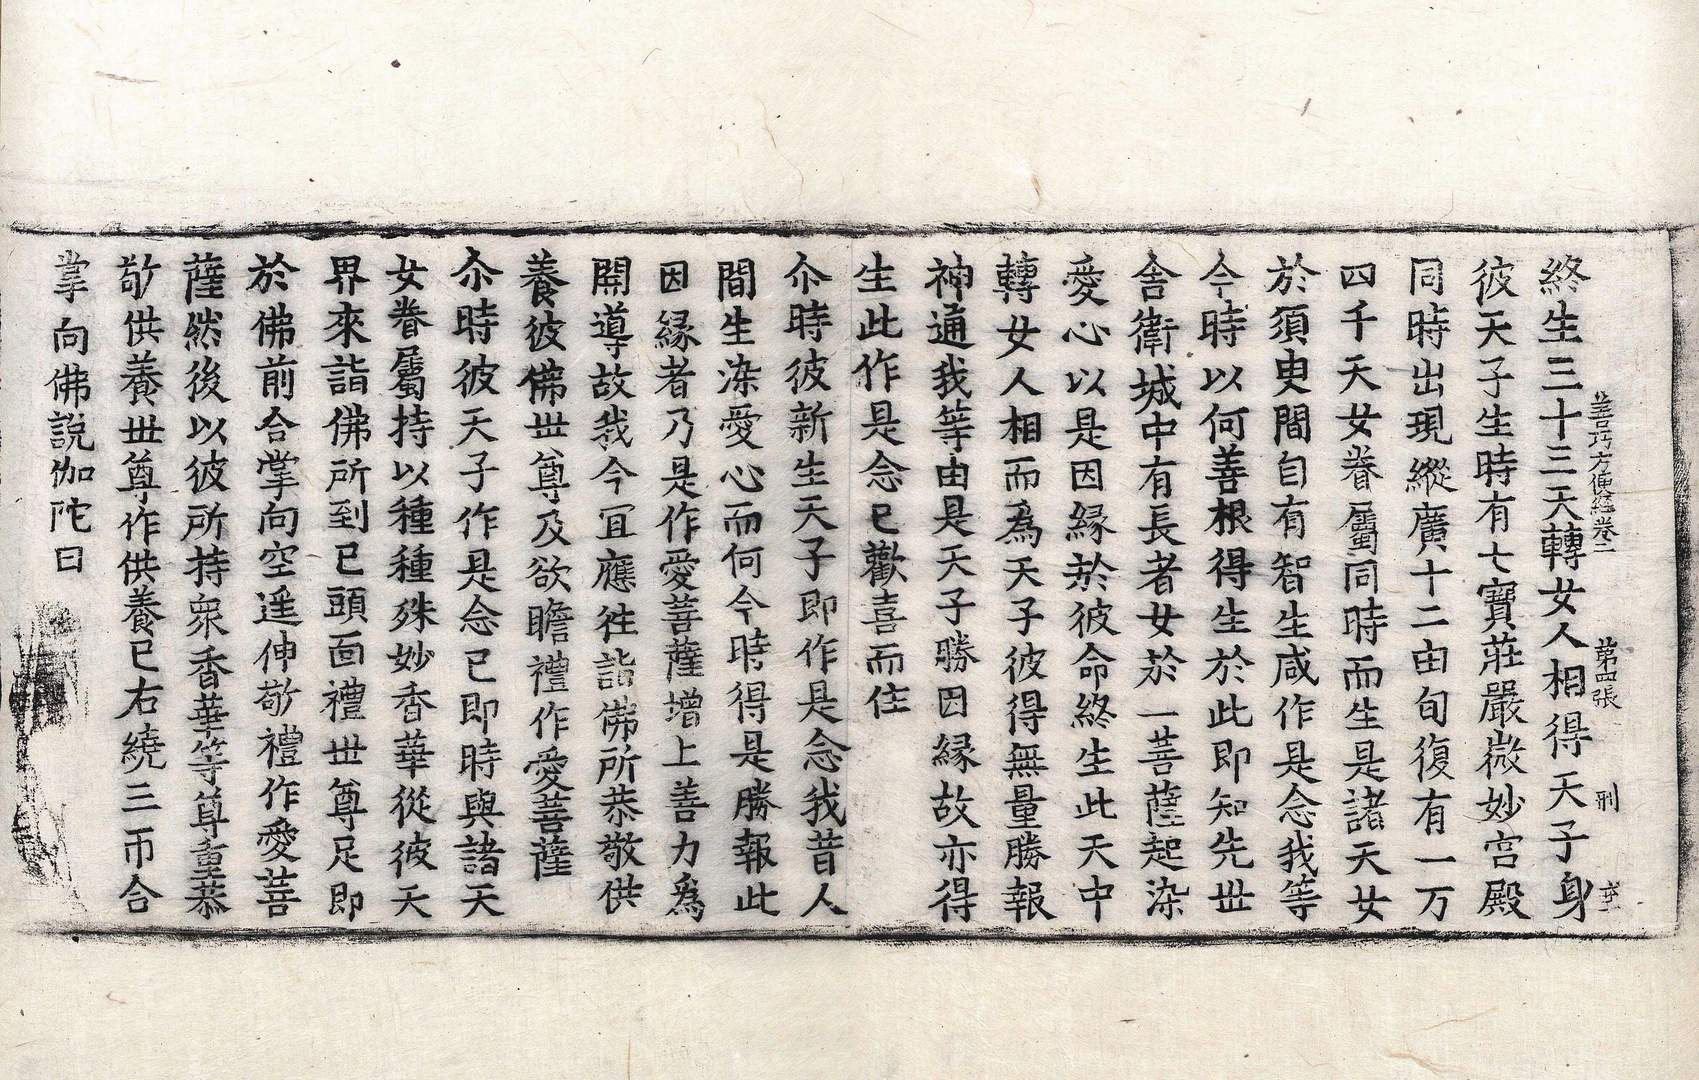 終生三十三天轉女人相得天子身
善巧方便經卷二　第四張　刑
彼天子生時有七寶莊嚴微妙宫殿
同時出現縱廣十二由旬復有一万
四千天女眷屬同時而生是諸天女
於須臾間自有智生咸作是念我等
今時以何善根得生於此即知先世
舍衛城中有長者女於一菩薩起染
愛心以是因緣於彼命終生此天中
轉女人相而爲天子彼得無量勝報
神通我等由是天子勝因緣故亦得
生此作是念已歡喜而住
尒時彼新生天子即作是念我昔人
間生染愛心而何今時得是勝報此
因緣者乃是作愛菩薩增上善力爲
開導故我今冝應往詣佛所恭敬供
養彼佛世尊及欲瞻禮作愛菩薩
尒時彼天子作是念已即時與諸天
女眷屬持以種種殊妙香華從彼天
界來詣佛所到已頭面禮世尊足即
於佛前合掌向空遥伸敬禮作愛菩
薩然後以彼所持衆香華等尊重恭
敬供養世尊作供養已右繞三帀合
掌向佛說伽陀曰